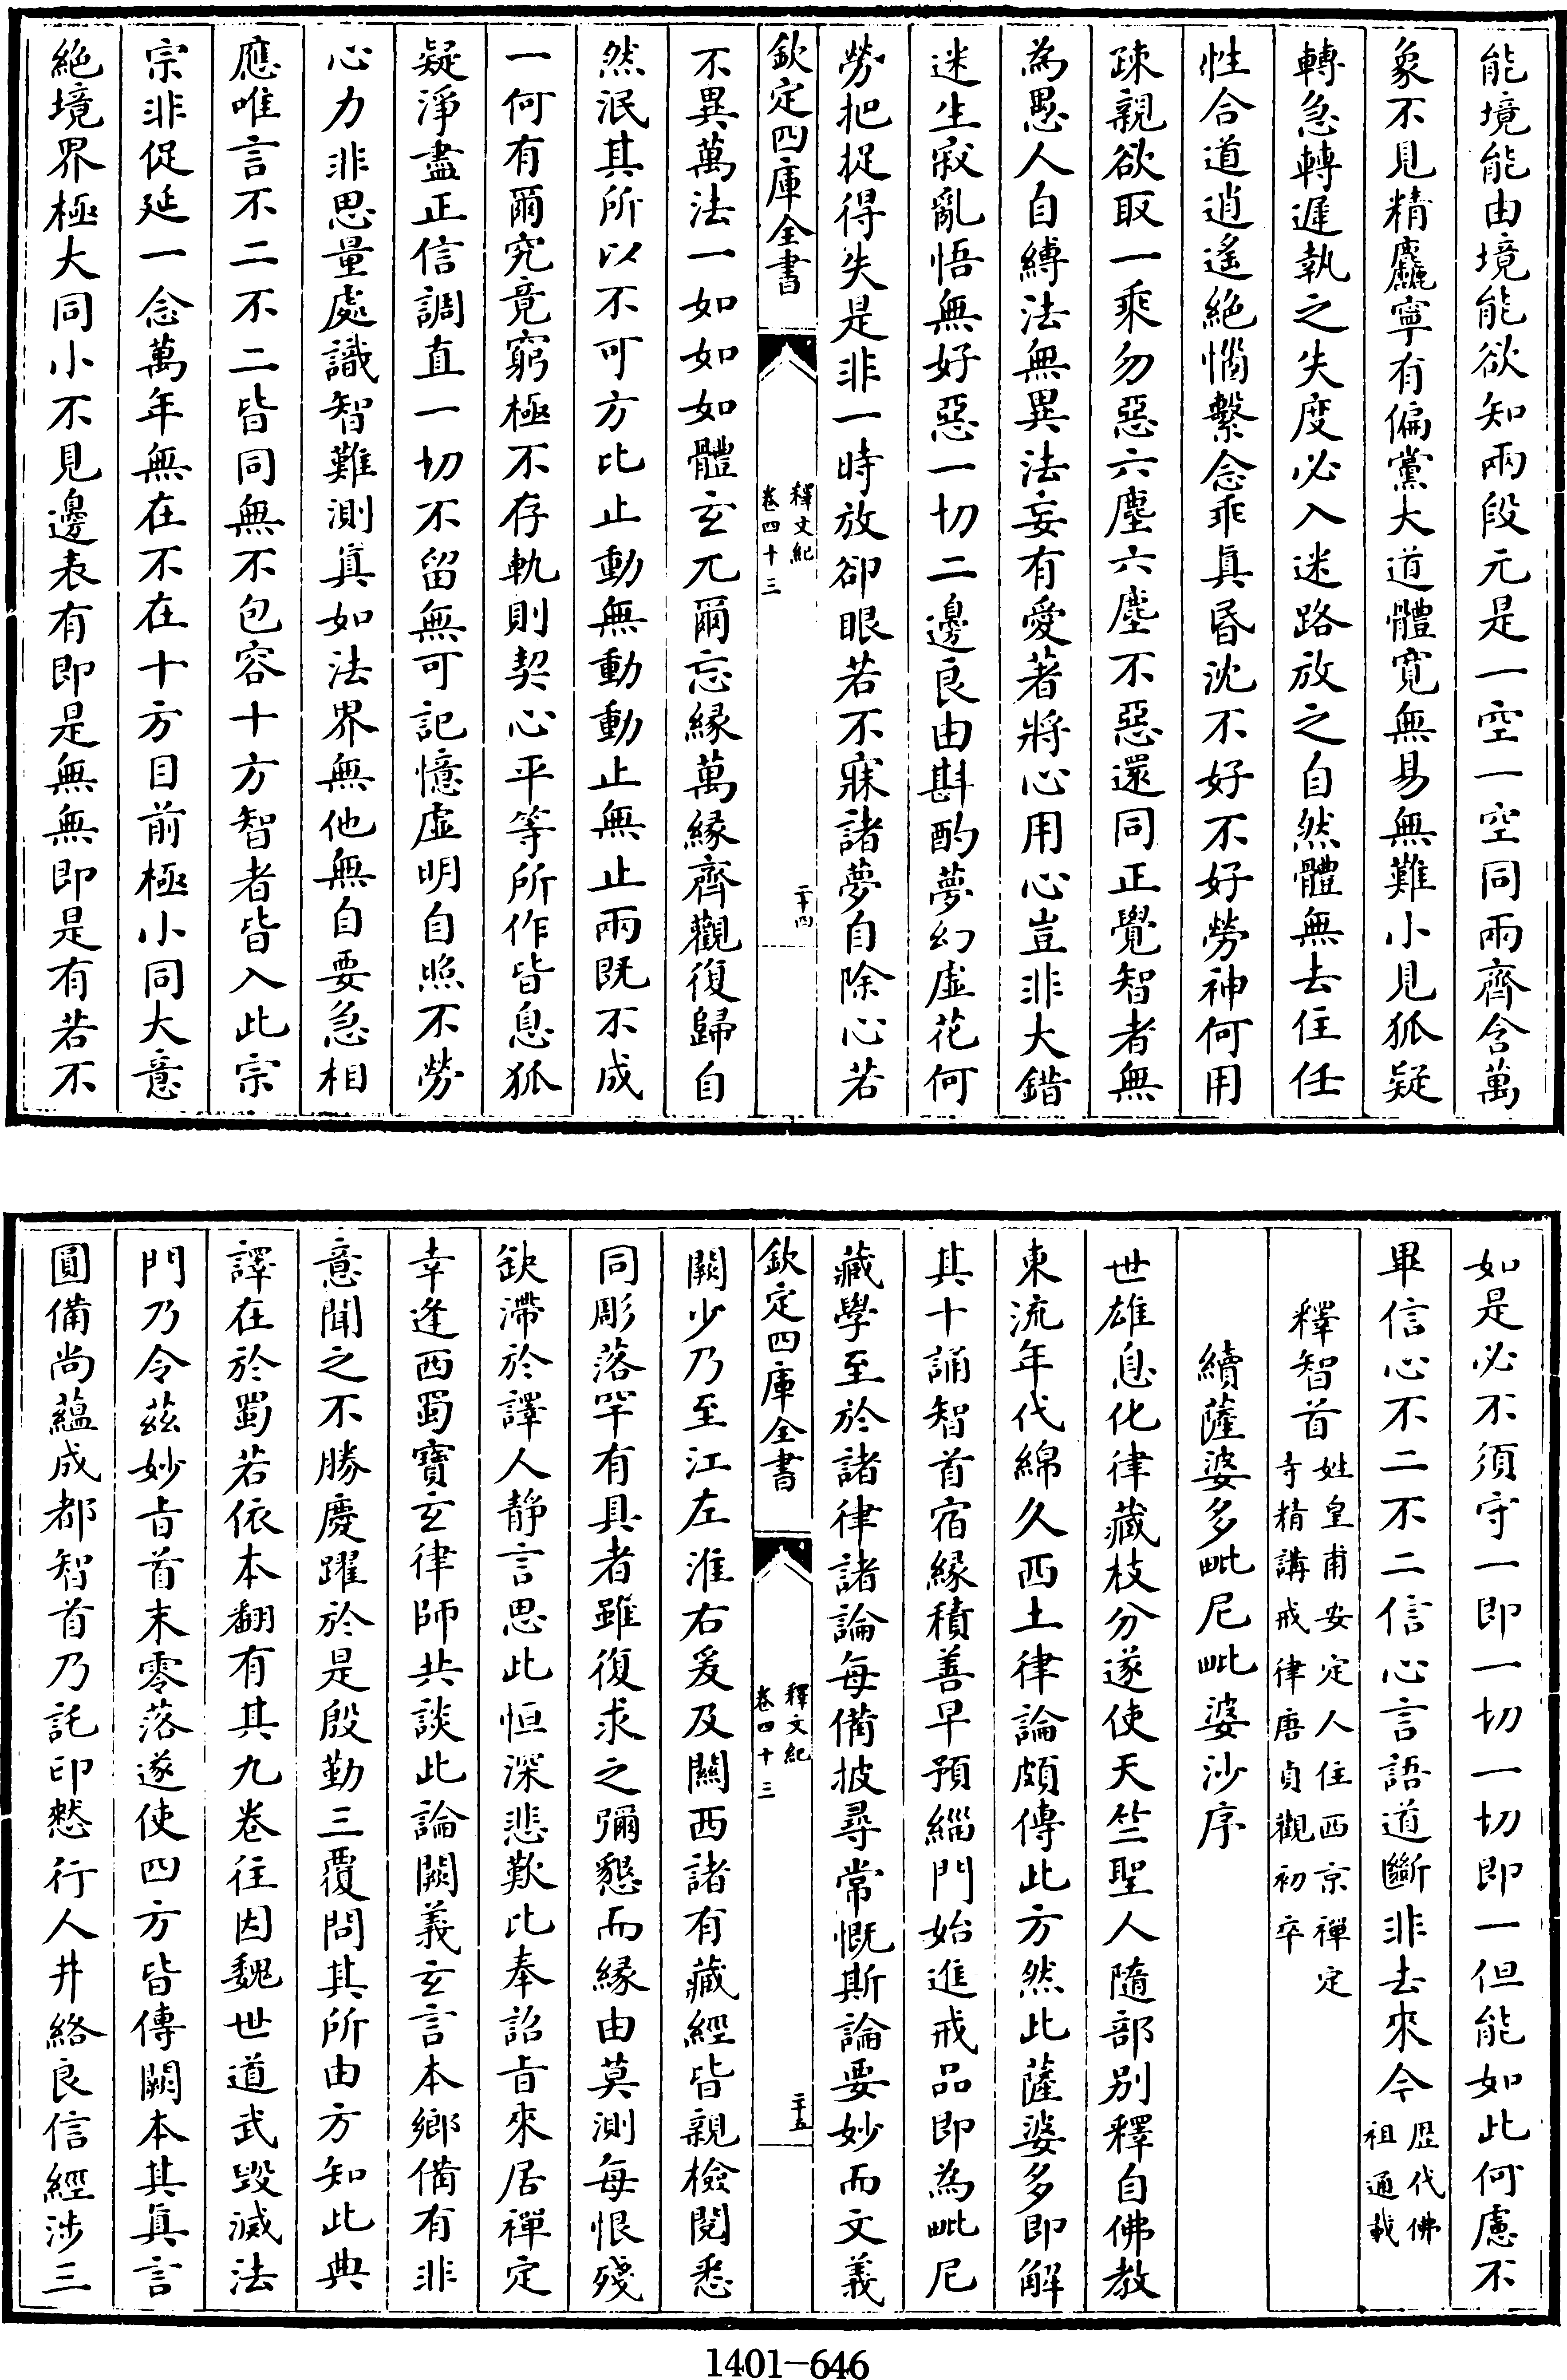 能境能由境能欲知兩段元是一空一空同兩齊含萬
象不見精麤寧有偏黨大道體寛無易無難小見狐疑
轉急轉遲執之失度必入迷路放之自然體無去住任
性合道逍遙絶惱繫念乖真昏沈不好不好勞神何用
疎親欲取一乘勿惡六塵六塵不惡還同正覺智者無
為愚人自縛法無異法妄有愛著將心用心豈非大錯
迷生寂亂悟無好惡一切二邊良由斟酌夢幻虛花何
勞把捉得失是非一時放卻眼若不寐諸夢自除心若
欽定四庫全書
釋文紀
卷四十三
二十四
不異萬法一如如如體玄兀爾忘緣萬緣齊觀復歸自
然泯其所以不可方比止動無動動止無止兩既不成
一何有爾究竟窮極不存軌則契心平等所作皆息狐
疑淨盡正信調直一切不留無可記憶虛明自照不勞
心力非思量處識智難測真如法界無他無自要急相
應唯言不二不二皆同無不包容十方智者皆入此宗
宗非促延一念萬年無在不在十方目前極小同大意
絶境界極大同小不見邊表有即是無無即是有若不
如是必不須守一即一切一切即一但能如此何慮不
畢信心不二不二信心言語道斷非去來今歴代佛
祖通載
釋智首姓皇甫安定人住西京禪定
寺精講戒律唐貞觀初卒
續薩婆多毗尼毗婆沙序
世雄息化律藏枝分遂使天竺聖人隨部别釋自佛教
東流年代綿久西土律論頗傳此方然此薩婆多即解
其十誦智首宿緣積善早預緇門始進戒品即為毗尼
藏學至於諸律諸論每備披尋常慨斯論要妙而文義
欽定四庫全書
釋文紀
卷四十三
二十五
闕少乃至江左淮右爰及關西諸有藏經皆親檢閱悉
同彫落罕有具者雖復求之彌懇而緣由莫測每恨殘
缺滯於譯人靜言思此恒深悲歎比奉詔旨來居禪定
幸逢西蜀寶玄律師共談此論闕義玄言本鄉備有非
意聞之不勝慶躍於是殷勤三覆問其所由方知此典
譯在於蜀若依本翻有其九卷往因魏世道武毀滅法
門乃令茲妙旨首末零落遂使四方皆傳闕本其真言
圓備尚蘊成都智首乃託印愁行人井絡良信經涉三
1401-646